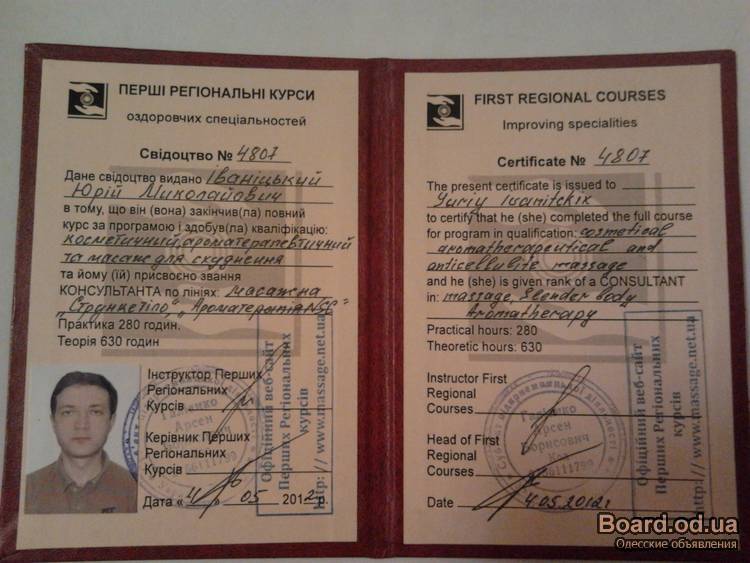 ПЕРШІ РЕГІОНАЛЬНІ КУРСИ
оздоровчих спеціальностей
Свідоцтво № 4807
Дане свідоцтво видано Іваніцький
Юрій Миколайович
в тому, що він (вона) закінчив(ла) повний
курс за програмою і здобув(ла) кваліфікацію:
косметичний, ароматерапевтичний
та масаж для схуднення
та йому (їй) присвоєно звання
КОНСУЛЬТАНТА по лініях: масажна
Практика 280 годин.
Теорія 630 годин
Інструктор Перших
Регіональних
Курсів
Керівник Перших
Регіональних
Курсів
Дата «4» 05 2012 р.
Офіційний веб-сайт
Перших Регіональних
курсів
http://www.massage.net.ua
FIRST REGIONAL COURSES
Improving specialities
Certificate № 4807
The present certificate is issued to
Yuriy
to certify that he (she) completed the full course
for program in qualification: cosmetical
aromatherapeutical and
anticellulite massage
and he (she) is given rank of a CONSULTANT
in: massage, Slender body
Aromatherapy
Practical hours: 280
Theoretic hours: 630
Instructor First
Regional
Courses
Head of First
Regional
Courses
Date 4.05.2012
Арсен
Борисович
Код
66111799
Офіційний веб-сайт
Перших Регіональних
курсів
http://www.massage.net.ua
Board.od.ua
Одесские объявления